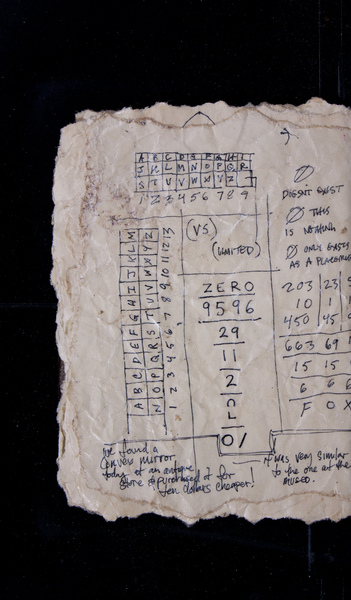 A B C D E F G H I
J K L M N O P Q R
S T U V W X Y Z
1 2 3 4 5 6 7 8 9
A B C D E F G H I J K L M
N O P Q R S T U V W X Y Z
1 2 3 4 5 6 7 8 9 10 11 12 13
(VS)
(LIMITED)
ZERO
9596
29
11
2
0/
Ø
DOESN'T EXIST
Ø THIS
IS NOTHING
Ø ONLY EXISTS
AS A PLACEMENT
203 23
10 1
450 45 9
663 69
15 15
6 6 6
F O X
We found a
convex mirror
today at an antique
store & purchased it for
ten dollars cheaper!
It was very similar
to the one at the